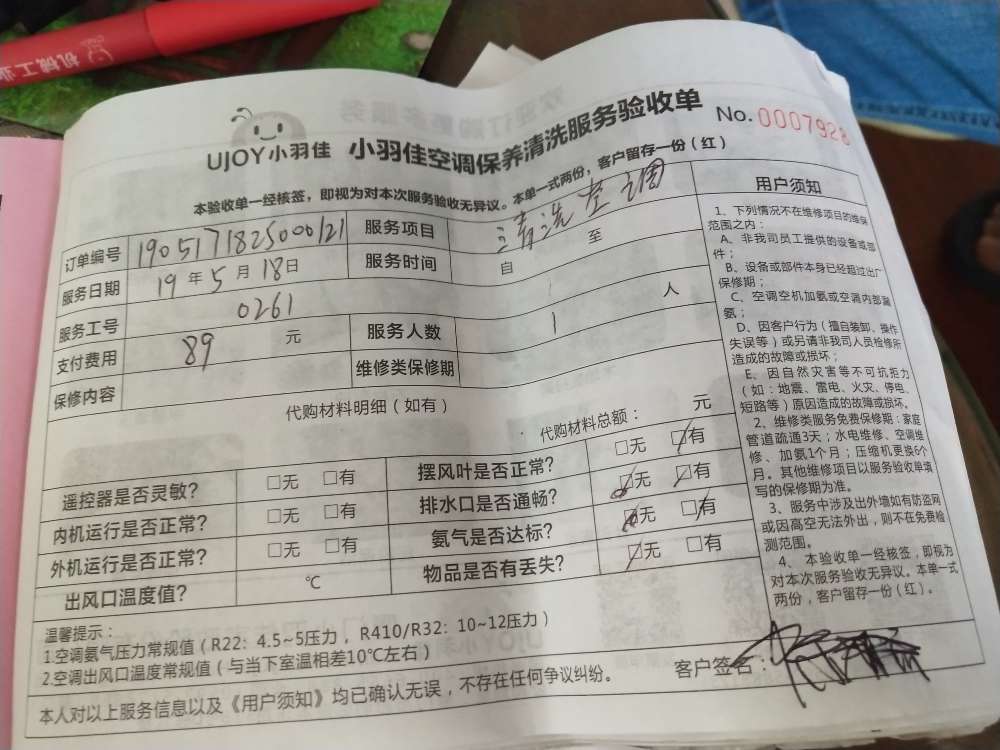 机械工业
UJOY小羽佳 小羽佳空调保养清洗服务验收单 No. 0007928
本验收单一经核签，即视为对本次服务验收无异议。本单一式两份，客户留存一份（红）
订单编号 190517182500121 服务项目 清洗空调
服务日期 19 年 5 月 18 日 服务时间 自 至
服务工号 0261
支付费用 89 元 服务人数 1 人
保修内容 维修类保修期
代购材料明细（如有） 代购材料总额： 元
遥控器是否灵敏？ □无 □有 摆风叶是否正常？ □无 ☑有
内机运行是否正常？ □无 □有 排水口是否通畅？ ☑无 ☑有
外机运行是否正常？ □无 □有 氨气是否达标？ ☑无 ☑有
出风口温度值？ ℃ 物品是否有丢失？ ☑无 □有
温馨提示：
1.空调氨气压力常规值（R22：4.5~5压力，R410/R32：10~12压力）
2.空调出风口温度常规值（与当下室温相差10℃左右）
本人对以上服务信息以及《用户须知》均已确认无误，不存在任何争议纠纷。 客户签名：
用户须知
1、下列情况不在维修项目的维保
范围之内：
A、非我司员工提供的设备或部
件；
B、设备或部件本身已经超过出厂
保修期；
C、空调空机加氨或空调内部漏
氨；
D、因客户行为（擅自装卸、操作
失误等）或另请非我司人员检修所
造成的故障或损坏；
E、因自然灾害等不可抗拒力
（如：地震、雷电、火灾、停电、
短路等）原因造成的故障或损坏。
2、维修类服务免费保修期：家庭
管道疏通3天；水电维修、空调维
修、加氨1个月；压缩机更换6个
月。其他维修项目以服务验收单填
写的保修期为准。
3、服务中涉及出外墙如有防盗网
或因高空无法外出，则不在免费检
测范围。
4、本验收单一经核签，即视为
对本次服务验收无异议。本单一式
两份，客户留存一份（红）。